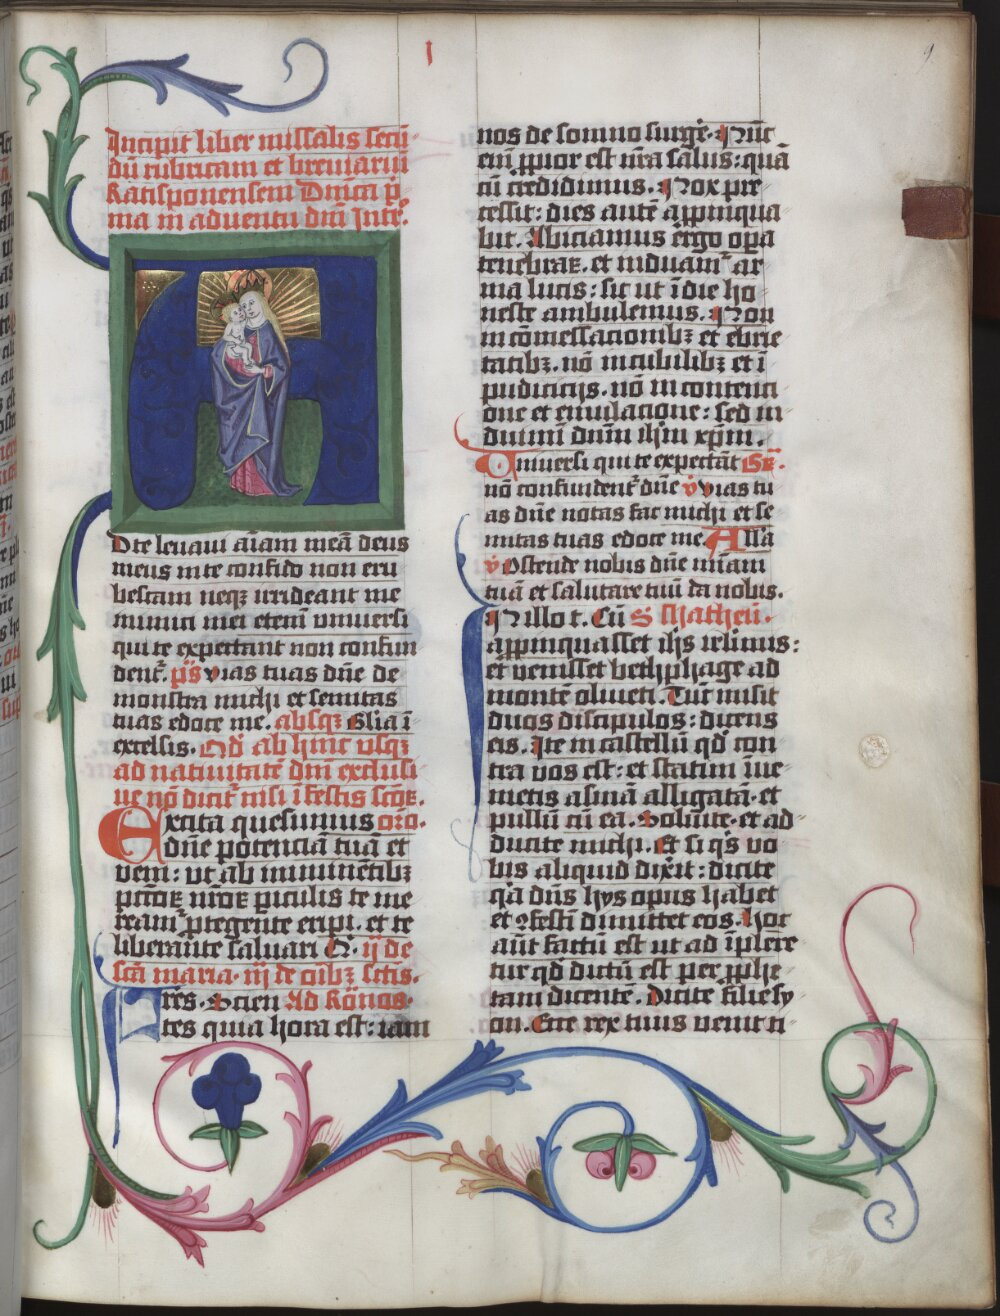 I
9
Incipit liber missalis secū
dū rubricam et breuiariū
Ratisponensem Dnīca p̄
ma in aduentu dn̄i Intr̄.
A
D te leuaui aīam meā deus
meus in te confido non eru
bescam neqꝫ irrideant me
inimici mei etenī vniuersi
qui te expectant non confun
dentᷣ. p̄s vias tuas dn̄e de
monstra michi et semitas
tuas edoce me. absqꝫ Glīa ī
excelsis. Qd̓ ab hinc vsqꝫ
ad natiuitatē dn̄i exclusi
ue nō dicitᷣ nisi ī festis sctōꝝ.
Excita quesumus oro.
dn̄e potenciā tuā et
veni: vt ab imminētibꝫ
pctōꝝ nr̄oꝝ piculis te me
reamᷣ ꝓtegente eripi. et te
liberante saluari Q. ij de
scā maria. iij de oībꝫ sctīs.
Fres. Scien Ad Rōnos.
tes quia hora est: iam
nos de somno surgē. Nūc
em̄ ꝓpior est nr̄a salus: quā
cū credidimus. Nox pre
cessit: dies autē appinqua
bit. Abiciamus ergo opa
tenebraꝝ. et induamᷣ ar
ma lucis: sic ut ī die ho
neste ambulemus. Non
in cōmessacionibꝫ et ebrie
tatibꝫ. nō in cubilibꝫ et ī
pudicicijs. nō in contenci
one et emulacione: sed in
duimī dnm̄ ihm xp̄m.
Vniuersi qui te expectāt Gr̄.
nō confundentᷣ dn̄e v̓ vias tu
as dn̄e notas fac michi et se
mitas tuas edoce me Alla
v̓ Ostende nobis dn̄e miam̄
tuā et salutare tuū da nobis.
N illo t. Cū S Matheū.
appinquasset ihs ielimis:
et venisset bethphage ad
montē oliueti. Tūc misit
duos discipulos: dicens
eis. Ite in castellū qd̓ con
tra vos est: et statim īue
nietis asinā alligatā. et
pullū cū ea. Soluite. et ad
ducite michi. Et si qͥs vo
bis aliquid dixit: dicite
qͥa dn̄s hys opus habet
et ꝯfestī dimittet eos. Hoc
aūt factū est ut ad īplere
tur qd̓ dictū est per ꝓphe
tam dicente. Dicite filie sy
on. Ecce rex tuus venit ti